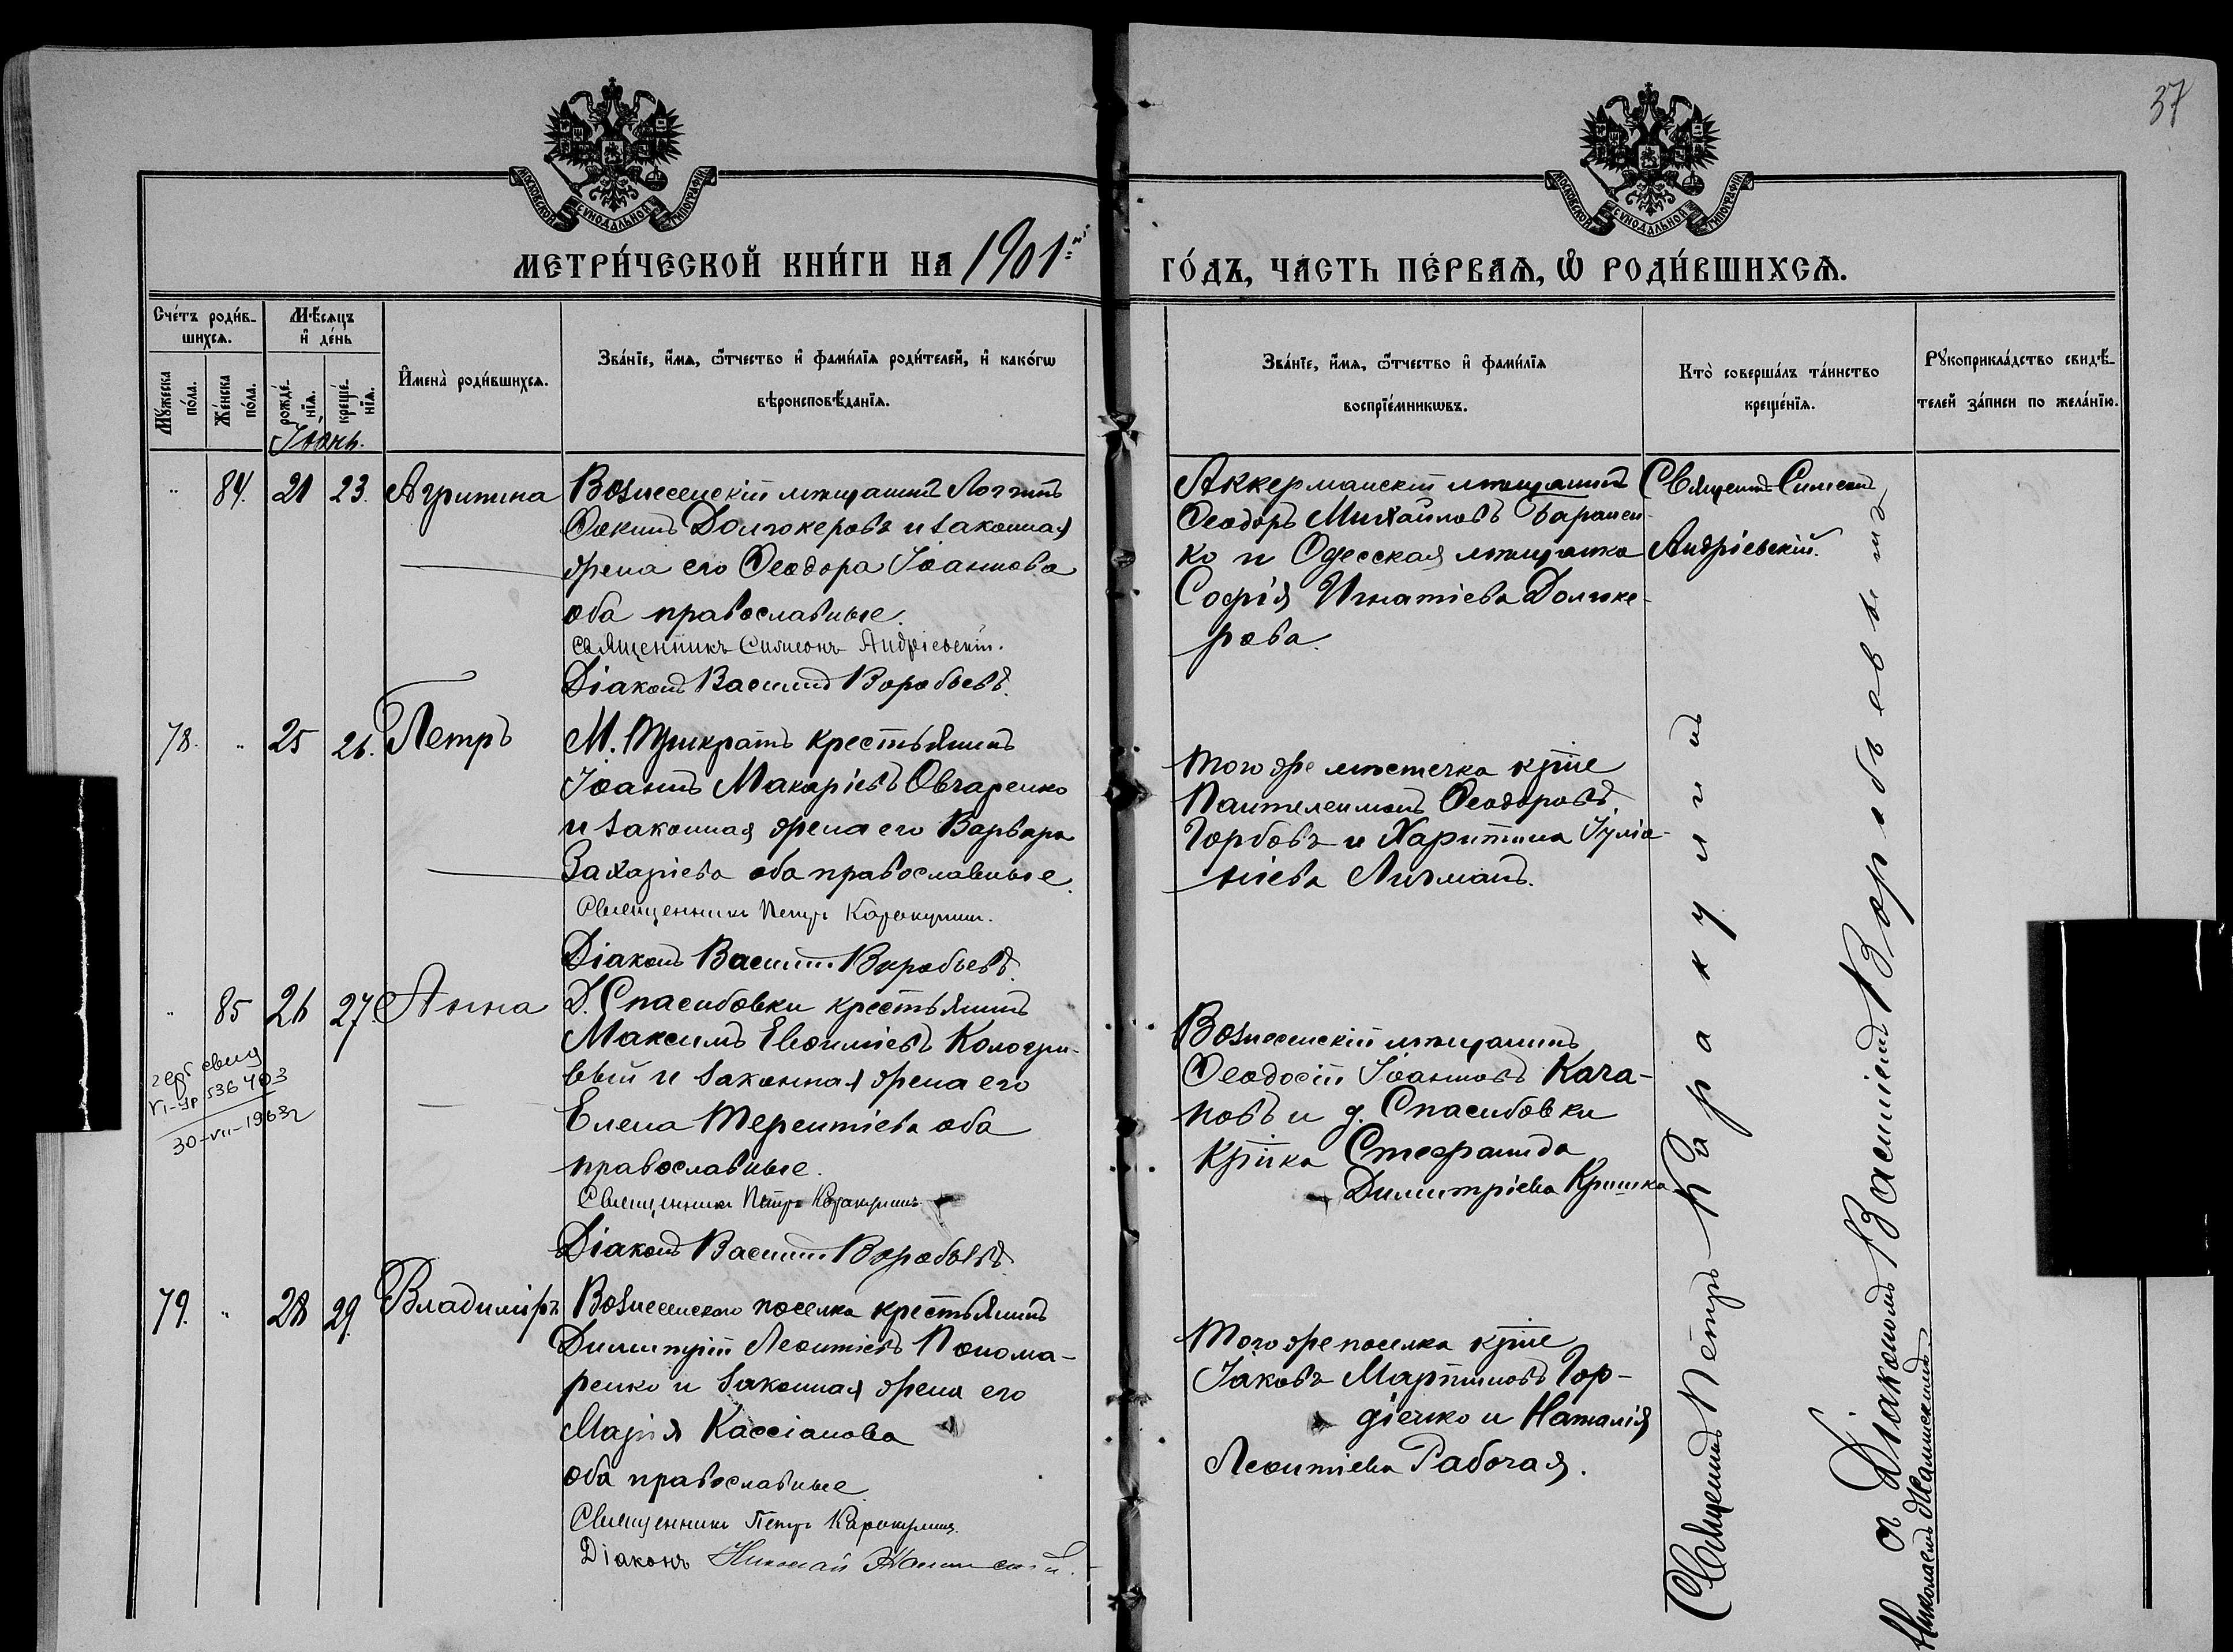 37
МОСКОВСКОЙ СѴНОДАЛЬНОЙ ТИПОГРАФІИ
МОСКОВСКОЙ СѴНОДАЛЬНОЙ ТИПОГРАФІИ
МЕТРИ́ЧЕСКОЙ КНИ́ГИ НА 1901й
ГО́ДЪ, ЧА́СТЬ ПЕ́РВАѦ, Ѡ҆ РОДИ́ВШИХСѦ.
Счéтъ роди́в-
шихсѧ.
Мꙋ́жеска по́ла.
Же́нска по́ла.
Мѣ́сѧцъ
и҆ де́нь
рожде́-
нїѧ.
креще́-
нїѧ.
Іюнь.
И҆мена̀ роди́вшихсѧ.
Зва́нїе, и҆́мѧ, ѻ҆́тчество и҆ фами́лїѧ роди́телей, и҆ како́гѡ
вѣроисповѣ́данїѧ.
Зва́нїе, и҆́мѧ, ѻ҆́тчество и҆ фами́лїѧ
воспрїе́мникѡвъ.
Кто̀ соверша́лъ та́инство
креще́нїѧ.
Рꙋкоприкла́дство свидѣ́-
телей за́писи по жела́нїю.
" 84. 21 23. Агрипина
Вознесенскій мѣщанинъ Логгинъ
Ѳокинъ Долгокеровъ и законная
жена его Ѳеодора Іоаннова
оба православные.
Священникъ Симеонъ Андріевскій.
Діаконъ Василій Воробьевъ.
Аккерманскій мѣщанинъ
Ѳеодоръ Михайловъ Баранен-
ко и Одесская мѣщанка
Софія Игнатіева Долгоке-
рова.
Священ. Симеонъ
Андріевскій.
78. " 25 26. Петръ
М. Трикратъ крестьянинъ
Іоаннъ Макаріевъ Овчаренко
и законная жена его Варвара
Захаріева оба православные.
Священникъ Петръ Каракулинъ.
Діаконъ Василій Воробьевъ.
Того же мѣстечка кр-не
Пантелеимонъ Ѳеодоровъ
Горбовъ и Харитина Іулiа-
ніева Личманъ.
" 85 26 27. Анна
Д. Спасибовки крестьянинъ
Максимъ Евѳиміевъ Кологри-
вый и законная жена его
Елена Терентіева оба
православные.
Священникъ Петръ Каракулинъ
Діаконъ Василій Воробьевъ
VI-УР 536403
30-VII-1963г
Вознесенскій мѣщанинъ
Ѳеодосій Іоанновъ Кача-
новъ и д. Спасибовки
кр-нка Стефанида
Димитріева Кришка
79. " 28 29. Владиміръ
Вознесенского поселка крестьянинъ
Димитрій Леонтіевъ Понома-
ренко и законная жена его
Марія Кассіанова
оба православные
Священникъ Петръ Каракулинъ.
Діаконъ Николай
Того же поселка кр-не
Іаковъ Мартиновъ Гор-
діенко и Наталія
Леонтіева Рабочая.
Священникъ Петръ Каракулинъ
съ Діакономъ Василіемъ Воробьевымъ
Николаемъ